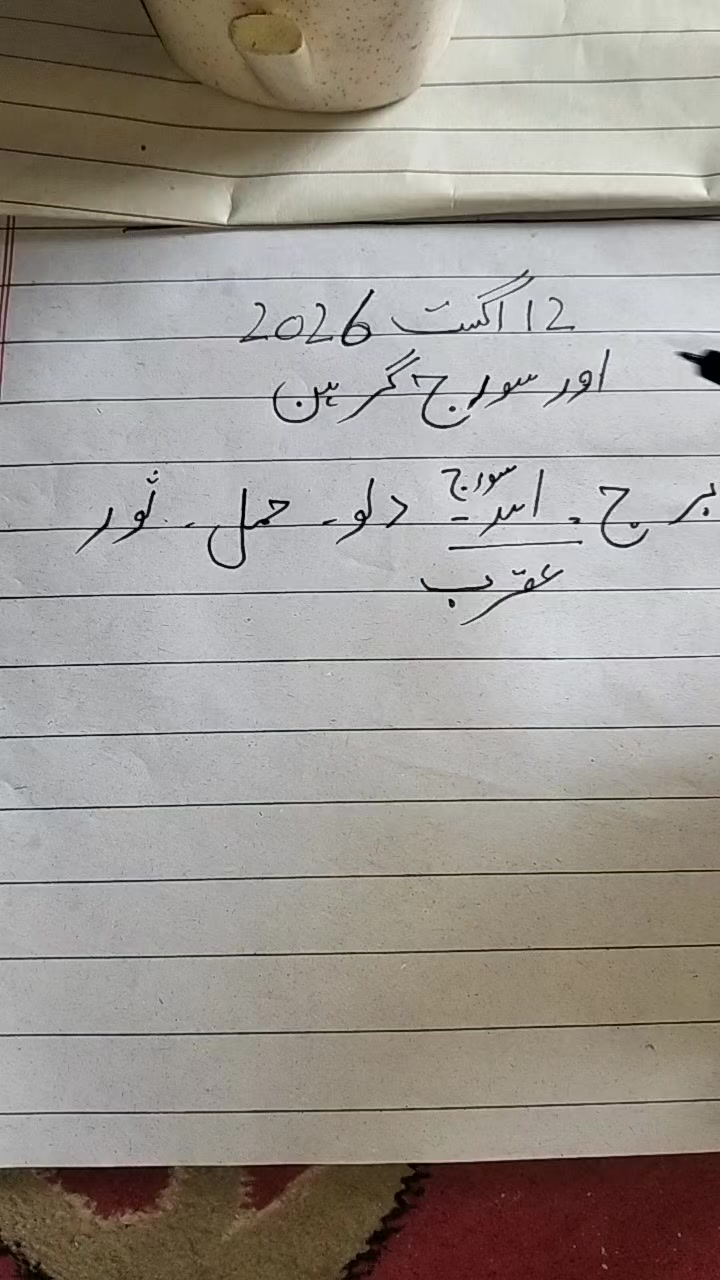 12 اگست 2026
اور سورج گرہن
سورج
برج . اسد - دلو - حمل - ثور
عقرب